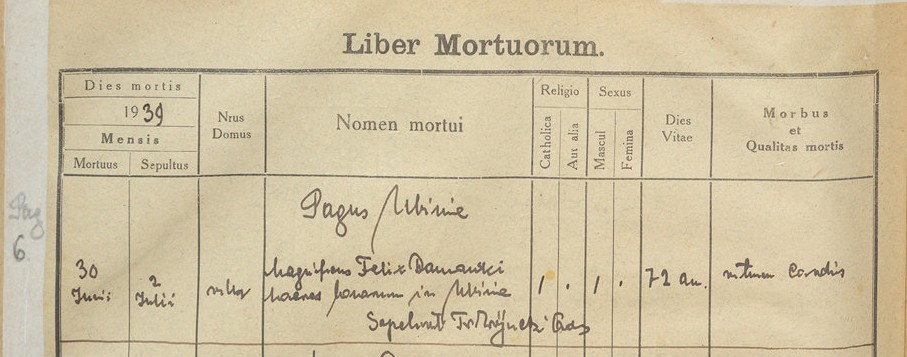 Liber Mortuorum.
Dies mortis
1939
Mensis
Mortuus
Sepultus
Nrus Domus
Nomen mortui
Religio
Catholica
Aut alia
Sexus
Mascul
Femina
Dies Vitae
Morbus
et
Qualitas mortis
Pag
6.
Pagus
30
Junii
2
Julii
Magnificus Felix
haeres bonorum in
Sepelivit
72 an.
vitium Cordis